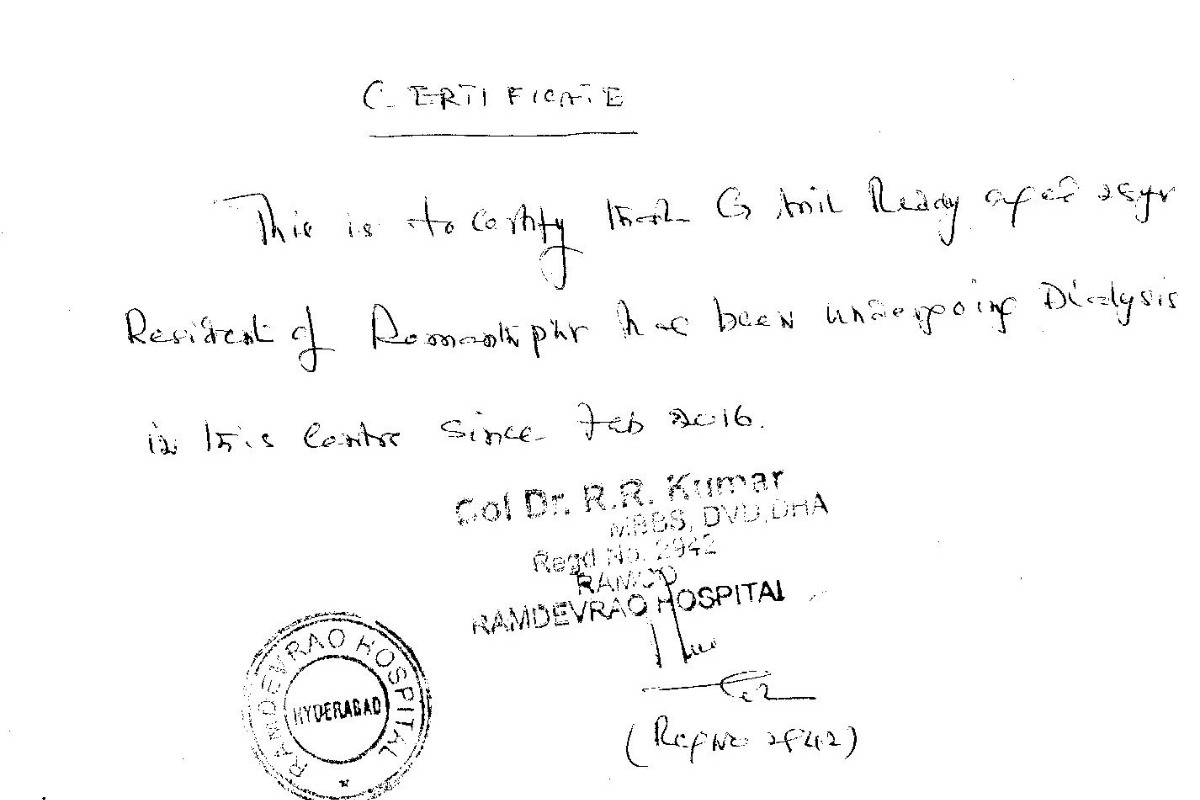 CERTIFICATE
This is to certify that G Anil Reddy aged 25yr
Resident of has been undergoing Dialysis
in this Centre Since Feb 2016.
Col Dr. R.R. Kumar
MBBS, DVD, DHA
Regd No. 2942
RAMDEVRAO HOSPITAL
RAMDEVRAO HOSPITAL
HYDERABAD
(Reg No 2942)